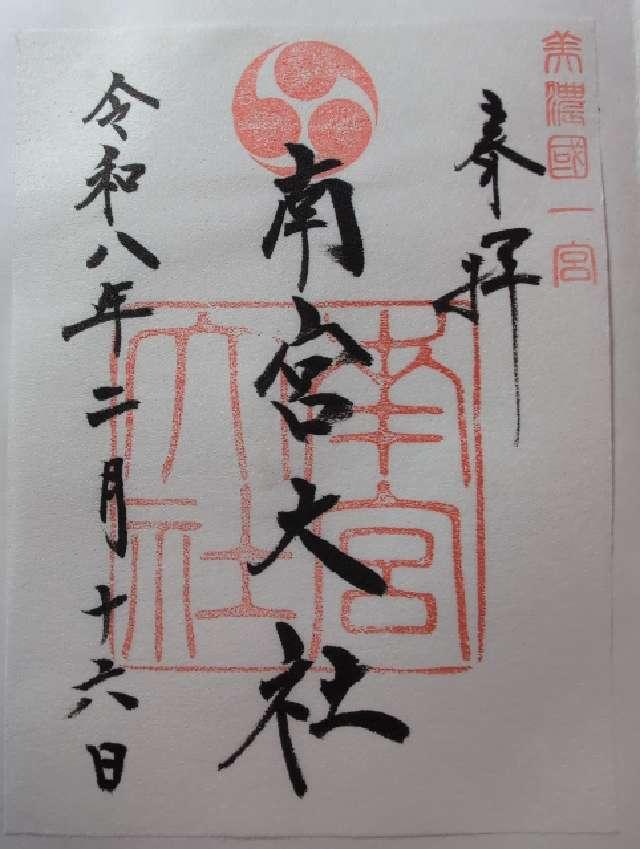 美濃國一宮
奉拝
南宮大社
南宮大社
令和八年二月十六日